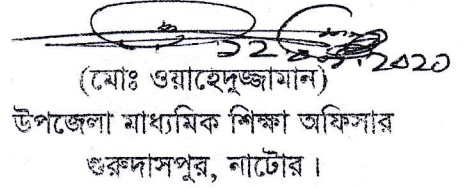 (মোঃ ওয়াহেদুজ্জামান)
উপজেলা মাধ্যমিক শিক্ষা অফিসার
গুরুদাসপুর, নাটোর ।